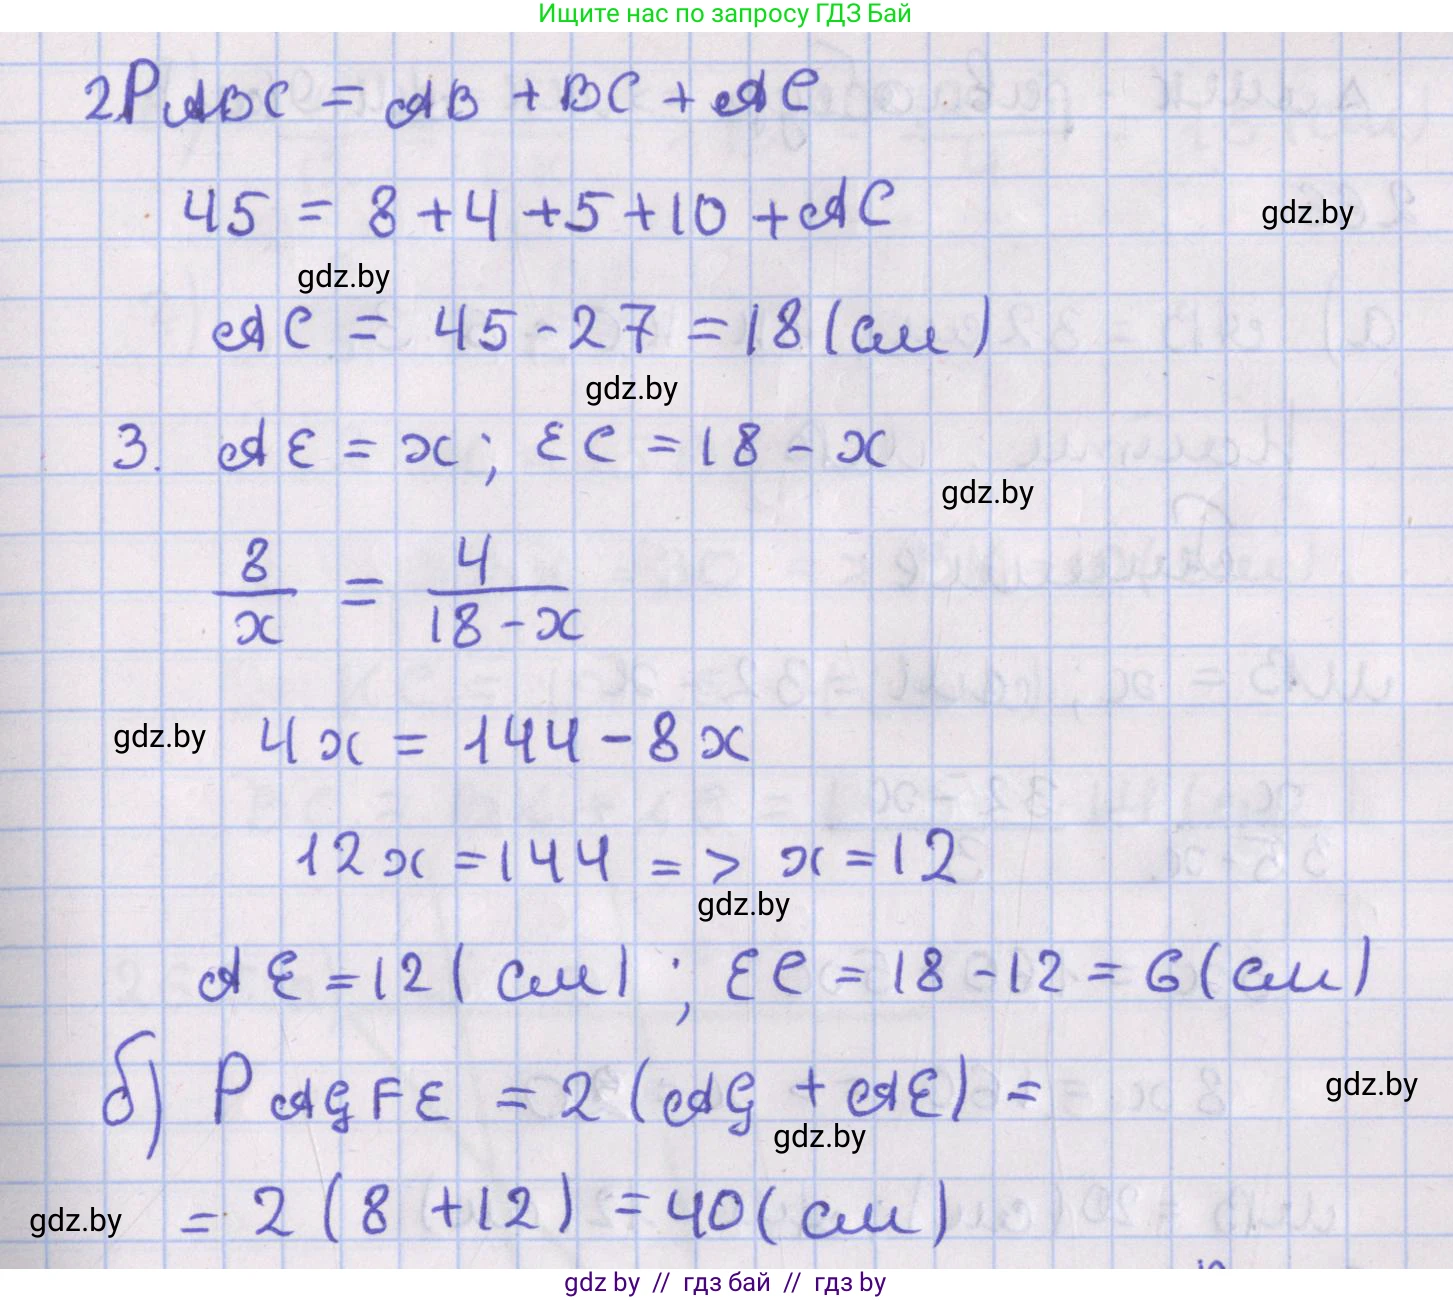 Ищите нас по запросу ГДЗ Бай
2. P ABC = AB + BC + AC
45 = 8 + 4 + 5 + 10 + AC
gdz.by
gdz.by
AC = 45 - 27 = 18 (см)
gdz.by
3. AE = x; EC = 18 - x
gdz.by
8/x = 4/(18 - x)
gdz.by
4x = 144 - 8x
12x = 144 => x = 12
gdz.by
AE = 12 (см) ; EC = 18 - 12 = 6 (см)
б) P AGFE = 2 (AG + AE) =
gdz.by
gdz.by
= 2 (8 + 12) = 40 (см)
gdz.by
gdz by // гдз бай // гдз by